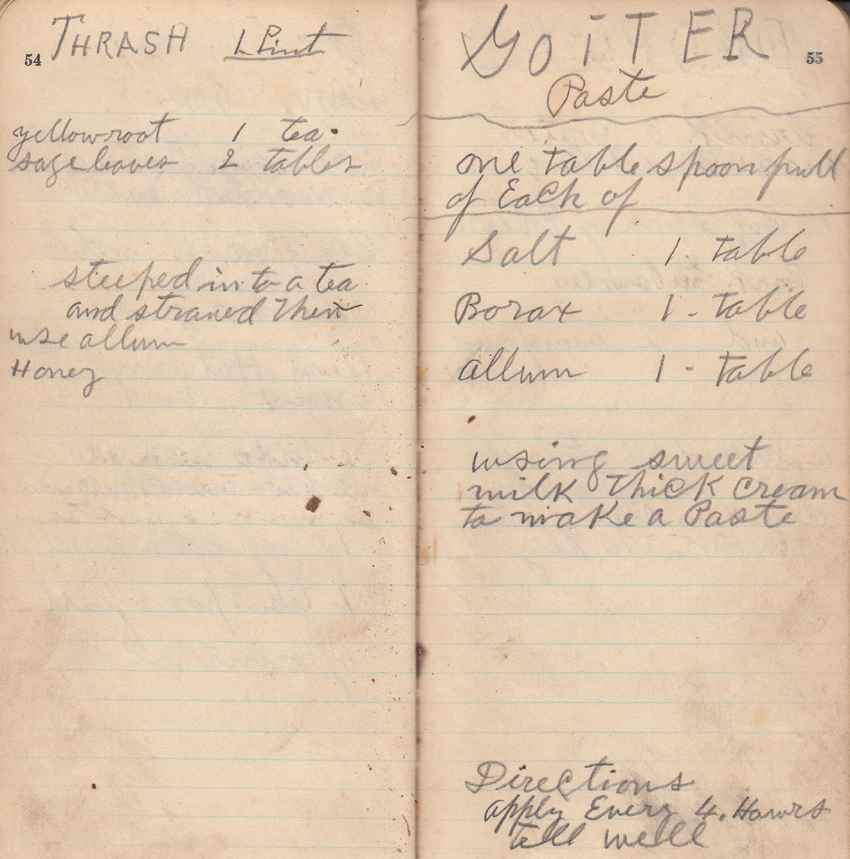 54
THRASH 1 Pint
yellowroot 1 tea.
sage leaves 2 tables
steeped in to a tea
and straned then
use allum
Honey
55
GOITTER
Paste
one table spoonfull
of Each of
Salt 1 table
Borax 1 - table
allum 1 - table
using sweet
milk thick cream
to make a Paste
Directions
apply Every 4. Hours
tell well